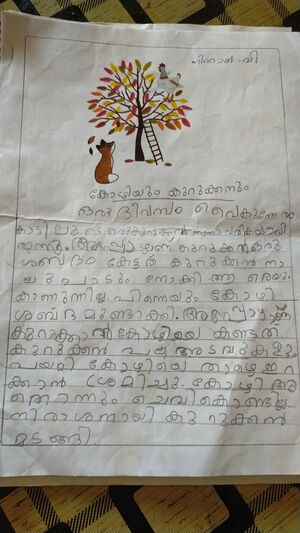 നിഹാൽ-വി
കോഴിയും കുറുക്കനും
ഒരു ദിവസം വൈകുന്നേരം
കാട്ടിലൂടെ ഒരു കുറുക്കൻ നടന്നു വരികയായി
രുന്നു. അപ്പോഴാണ് കുറുക്കൻ ഒരു
ശബ്ദം കേട്ടത് കുറുക്കൻ നാ
ലുപാടും നോക്കി ആരെയും
കാണുന്നില്ല പിന്നെയും കോഴി
ശബ്ദമുണ്ടാക്കി. അപ്പോഴാണ്
കുറുക്കൻ കോഴിയെ കണ്ടത്
കുറുക്കൻ പല അടവുകളും
പയറ്റി കോഴിയെ താഴെ ഇറ
ക്കാൻ ശ്രമിച്ചു. കോഴി അ
തൊന്നും ചെവികൊണ്ടില്ല
നിരാശനായി കുറുക്കൻ
മടങ്ങി.